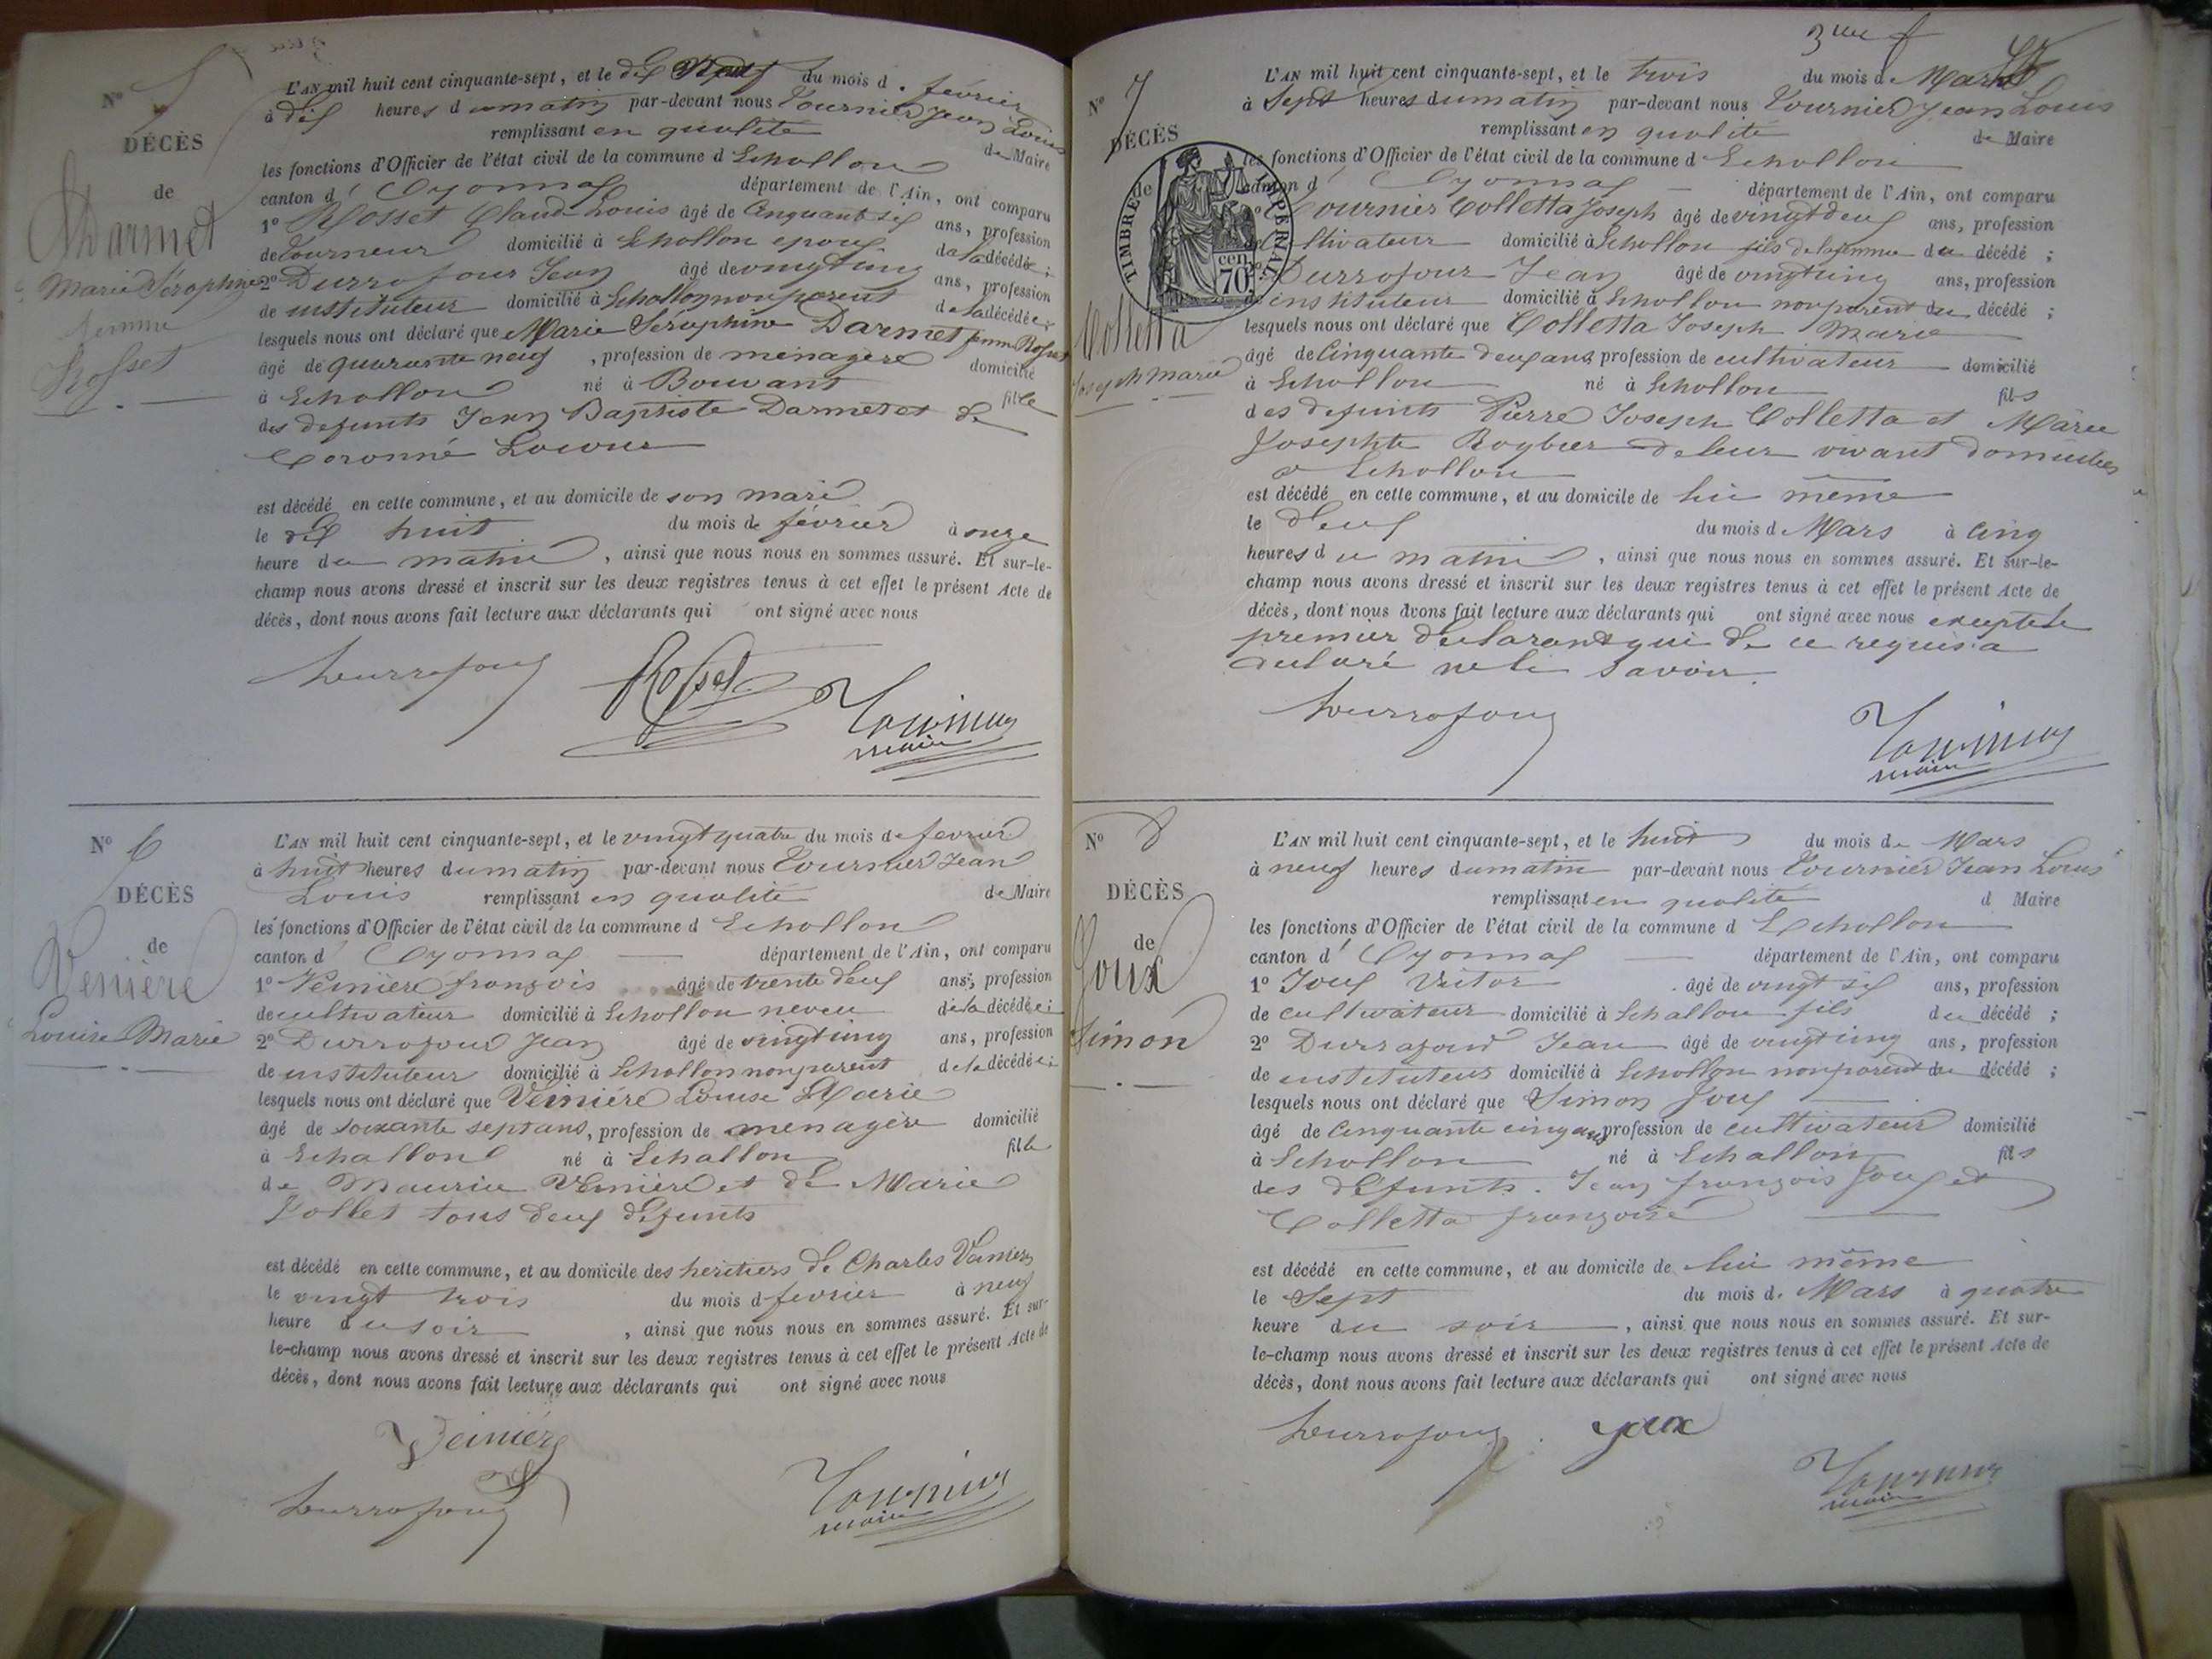 N° 5
DÉCÈS
de
Darmet
Marie Séraphine
femme
Rosset
L'AN mil huit cent cinquante-sept, et le dix neuf du mois d. février
à dix heures du matin par-devant nous Tournier Jean Louis
remplissant en qualité de Maire
les fonctions d'Officier de l'état civil de la commune d Echallon
canton d' Oyonnax département de l'Ain, ont comparu
1° Rosset Claude Louis âgé de Cinquante six ans, profession
de Tourneur domicilié à Echallon epoux de la décédée ;
2° Durrafour Jean âgé de vingt cinq ans, profession
de instituteur domicilié à Echallon non parent de la décédée ;
lesquels nous ont déclaré que Marie Séraphine Darmet femme Rosset
âgé de quarante neuf , profession de ménagère domicilié
à Echallon né à Bouvant fille
des defunts Jean Baptiste Darmet et de
est décédé en cette commune, et au domicile de son mari
le dix huit du mois de février à onze
heure du matin , ainsi que nous nous en sommes assuré. Et sur-le-
champ nous avons dressé et inscrit sur les deux registres tenus à cet effet le présent Acte de
décès, dont nous avons fait lecture aux déclarants qui ont signé avec nous
Durrafour Rosset Tournier
maire
N° 6
DÉCÈS
de
Veinière
Louise Marie
L'AN mil huit cent cinquante-sept, et le vingt quatre du mois de fevrier
à huit heures du matin par-devant nous Tournier Jean
Louis remplissant en qualité de Maire
les fonctions d'Officier de l'état civil de la commune d Echallon
canton d' Oyonnax département de l'Ain, ont comparu
1° Veinière françois âgé de trente deux ans, profession
de cultivateur domicilié à Echallon neveu de la décédée ;
2° Durrafour Jean âgé de vingt cinq ans, profession
de instituteur domicilié à Echallon non parent de la décédée ;
lesquels nous ont déclaré que Veinière Louise Marie
âgé de soixante sept ans, profession de ménagère domicilié
à Echallon né à Echallon fille
de Maurice Veinière et de Marie
tous deux défunts
est décédé en cette commune, et au domicile des héritiers de Charles Veinière
le vingt trois du mois d fevrier à neuf
heure du soir , ainsi que nous nous en sommes assuré. Et sur-
le-champ nous avons dressé et inscrit sur les deux registres tenus à cet effet le présent Acte de
décès, dont nous avons fait lecture aux déclarants qui ont signé avec nous
Veinière
Durrafour Tournier
maire
3me f
N° 7
DÉCÈS
de
TIMBRE IMPÉRIAL
70 cen
Colletta
Joseph Marie
L'AN mil huit cent cinquante-sept, et le trois du mois de Mars
à Sept heures du matin par-devant nous Tournier Jean Louis
remplissant en qualité de Maire
les fonctions d'Officier de l'état civil de la commune d Echallon
canton d' Oyonnax département de l'Ain, ont comparu
1° Tournier Colletta Joseph âgé de vingt deux ans, profession
de cultivateur domicilié à Echallon fils de la femme du décédé ;
2° Durrafour Jean âgé de vingt cinq ans, profession
de instituteur domicilié à Echallon non parent du décédé ;
lesquels nous ont déclaré que Colletta Joseph Marie
âgé de Cinquante deux ans profession de cultivateur domicilié
à Echallon né à Echallon fils
des defunts Pierre Joseph Colletta et Marie
Josephte de leur vivant domiciliés
à Echallon
est décédé en cette commune, et au domicile de lui même
le deux du mois d Mars à cinq
heures du matin , ainsi que nous nous en sommes assuré. Et sur-le-
champ nous avons dressé et inscrit sur les deux registres tenus à cet effet le présent Acte de
décès, dont nous avons fait lecture aux déclarants qui ont signé avec nous excepté le
premier déclarant qui de ce requis a
déclaré ne le savoir
Durrafour Tournier
maire
N° 8
DÉCÈS
de
Joux
Simon
L'AN mil huit cent cinquante-sept, et le huit du mois de Mars
à neuf heures du matin par-devant nous Tournier Jean Louis
remplissant en qualité d Maire
les fonctions d'Officier de l'état civil de la commune d Echallon
canton d' Oyonnax département de l'Ain, ont comparu
1° Joux Victor âgé de vingt six ans, profession
de cultivateur domicilié à Echallon fils du décédé ;
2° Durrafour Jean âgé de vingt cinq ans, profession
de instituteur domicilié à Echallon non parent du décédé ;
lesquels nous ont déclaré que Simon Joux
âgé de Cinquante cinq ans profession de cultivateur domicilié
à Echallon né à Echallon fils
des défunts Jean françois Joux et
Colletta françoise
est décédé en cette commune, et au domicile de lui même
le Sept du mois d. Mars à quatre
heure du soir , ainsi que nous nous en sommes assuré. Et sur-
le-champ nous avons dressé et inscrit sur les deux registres tenus à cet effet le présent Acte de
décès, dont nous avons fait lecture aux déclarants qui ont signé avec nous
Durrafour Joux
Tournier
maire